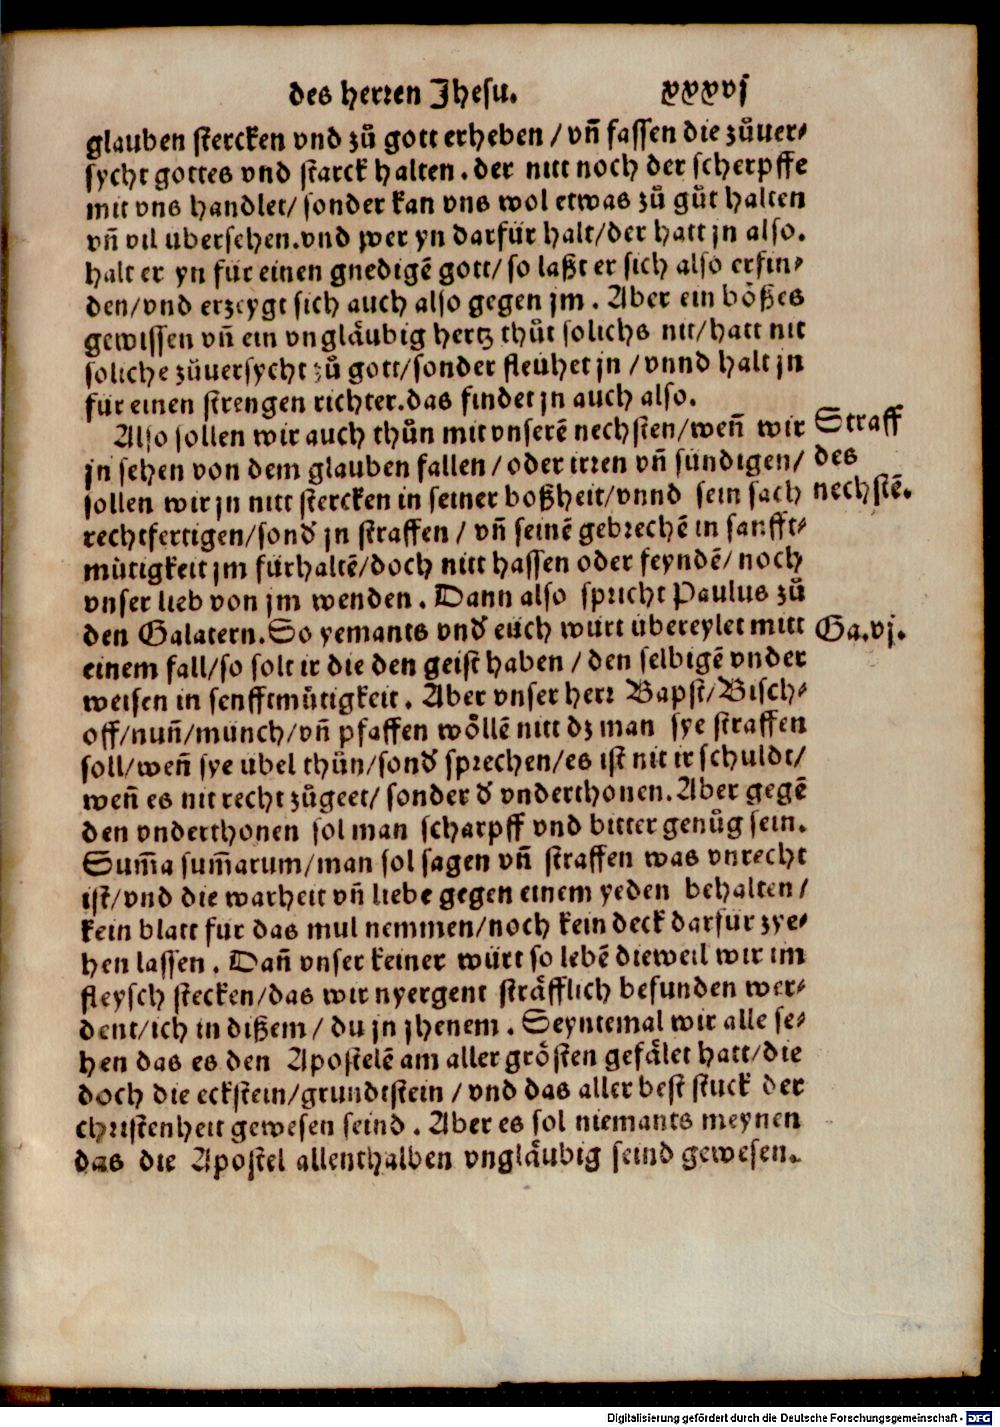 des herren Jhesu. xxxvj
glauben stercken vnd zů gott erheben / vñ fassen die zůuer⸗
sycht gottes vnd starck halten . der nitt noch der scherpffe
mit vns handlet/ sonder kan vns wol etwas zů gůt halten
vñ vil ubersehen.vnd wer yn darfür halt/der hatt jn also.
halt er yn für einen gnedigẽ gott/ so laßt er sich also erfin⸗
den/vnd erzeygt sich auch also gegen jm . Aber ein bößes
gewissen vñ ein vngläubig hertz thůt solichs nit/hatt nit
soliche zůuersycht zů gott/sonder fleuhet jn / vnnd halt jn
für einen strengen richter.das findet jn auch also.
Also sollen wir auch thůn mit vnserẽ nechsten/weñ wir
jn sehen von dem glauben fallen / oder irren vñ sündigen/
sollen wir jn nitt stercken in seiner boßheit/vnnd sein sach
rechtfertigen/sonđ jn straffen / vñ seinẽ gebrechẽ in sanfft⸗
mütigkeit jm fürhaltẽ/doch nitt hassen oder feyndẽ/ noch
vnser lieb von jm wenden . Dann also spricht Paulus zů
den Galatern.So yemants vnđ euch würt übereylet mitt
einem fall/so solt ir die den geist haben / den selbigẽ vnder
weisen in senfftmütigkeit . Aber vnser herr Bapst/Bisch⸗
off/nuñ/münch/vñ pfaffen wöllẽ nitt dz man sye straffen
soll/weñ sye übel thůn/sonđ sprechen/es ist nit ir schuldt/
weñ es nit recht zůgeet/ sonder đ vnderthonen. Aber gegẽ
den vnderthonen sol man scharpff vnd bitter genůg sein.
Sum̃a sum̃arum/man sol sagen vñ straffen was vnrecht
ist/vnd die warheit vñ liebe gegen einem yeden behalten /
kein blatt für das mul nemmen/noch kein deck darfür zye⸗
hen lassen . Dañ vnser keiner würt so lebẽ dieweil wir im
fleysch stecken/das wir nyergent sträfflich befunden wer⸗
dent/ich in dißem / du jn jhenem . Seyntemal wir alle se⸗
hen das es den Apostelẽ am aller grösten gefälet hatt/die
doch die eckstein/grundtstein / vnd das aller best stuck der
christenheit gewesen seind . Aber es sol niemants meynen
das die Apostel allenthalben vngläubig seind gewesen.
Straff
des
nechstẽ.
Ga.vj.
Digitalisierung gefördert durch die Deutsche Forschungsgemeinschaft - DFG